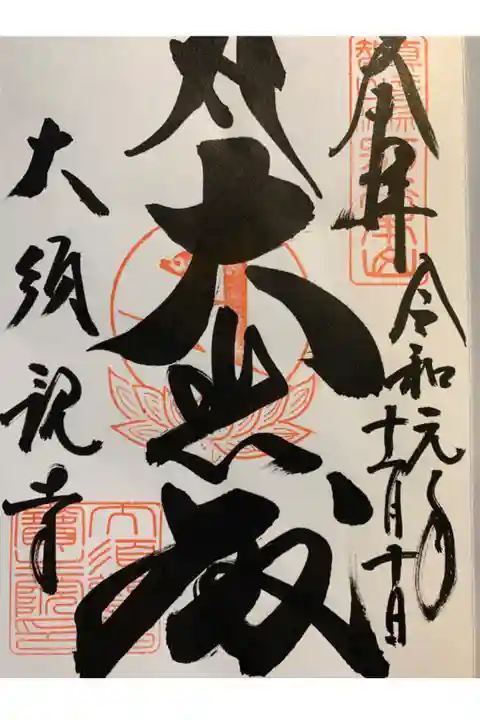 奉拝
令和元年
十一月十日
大悲殿
大須観音